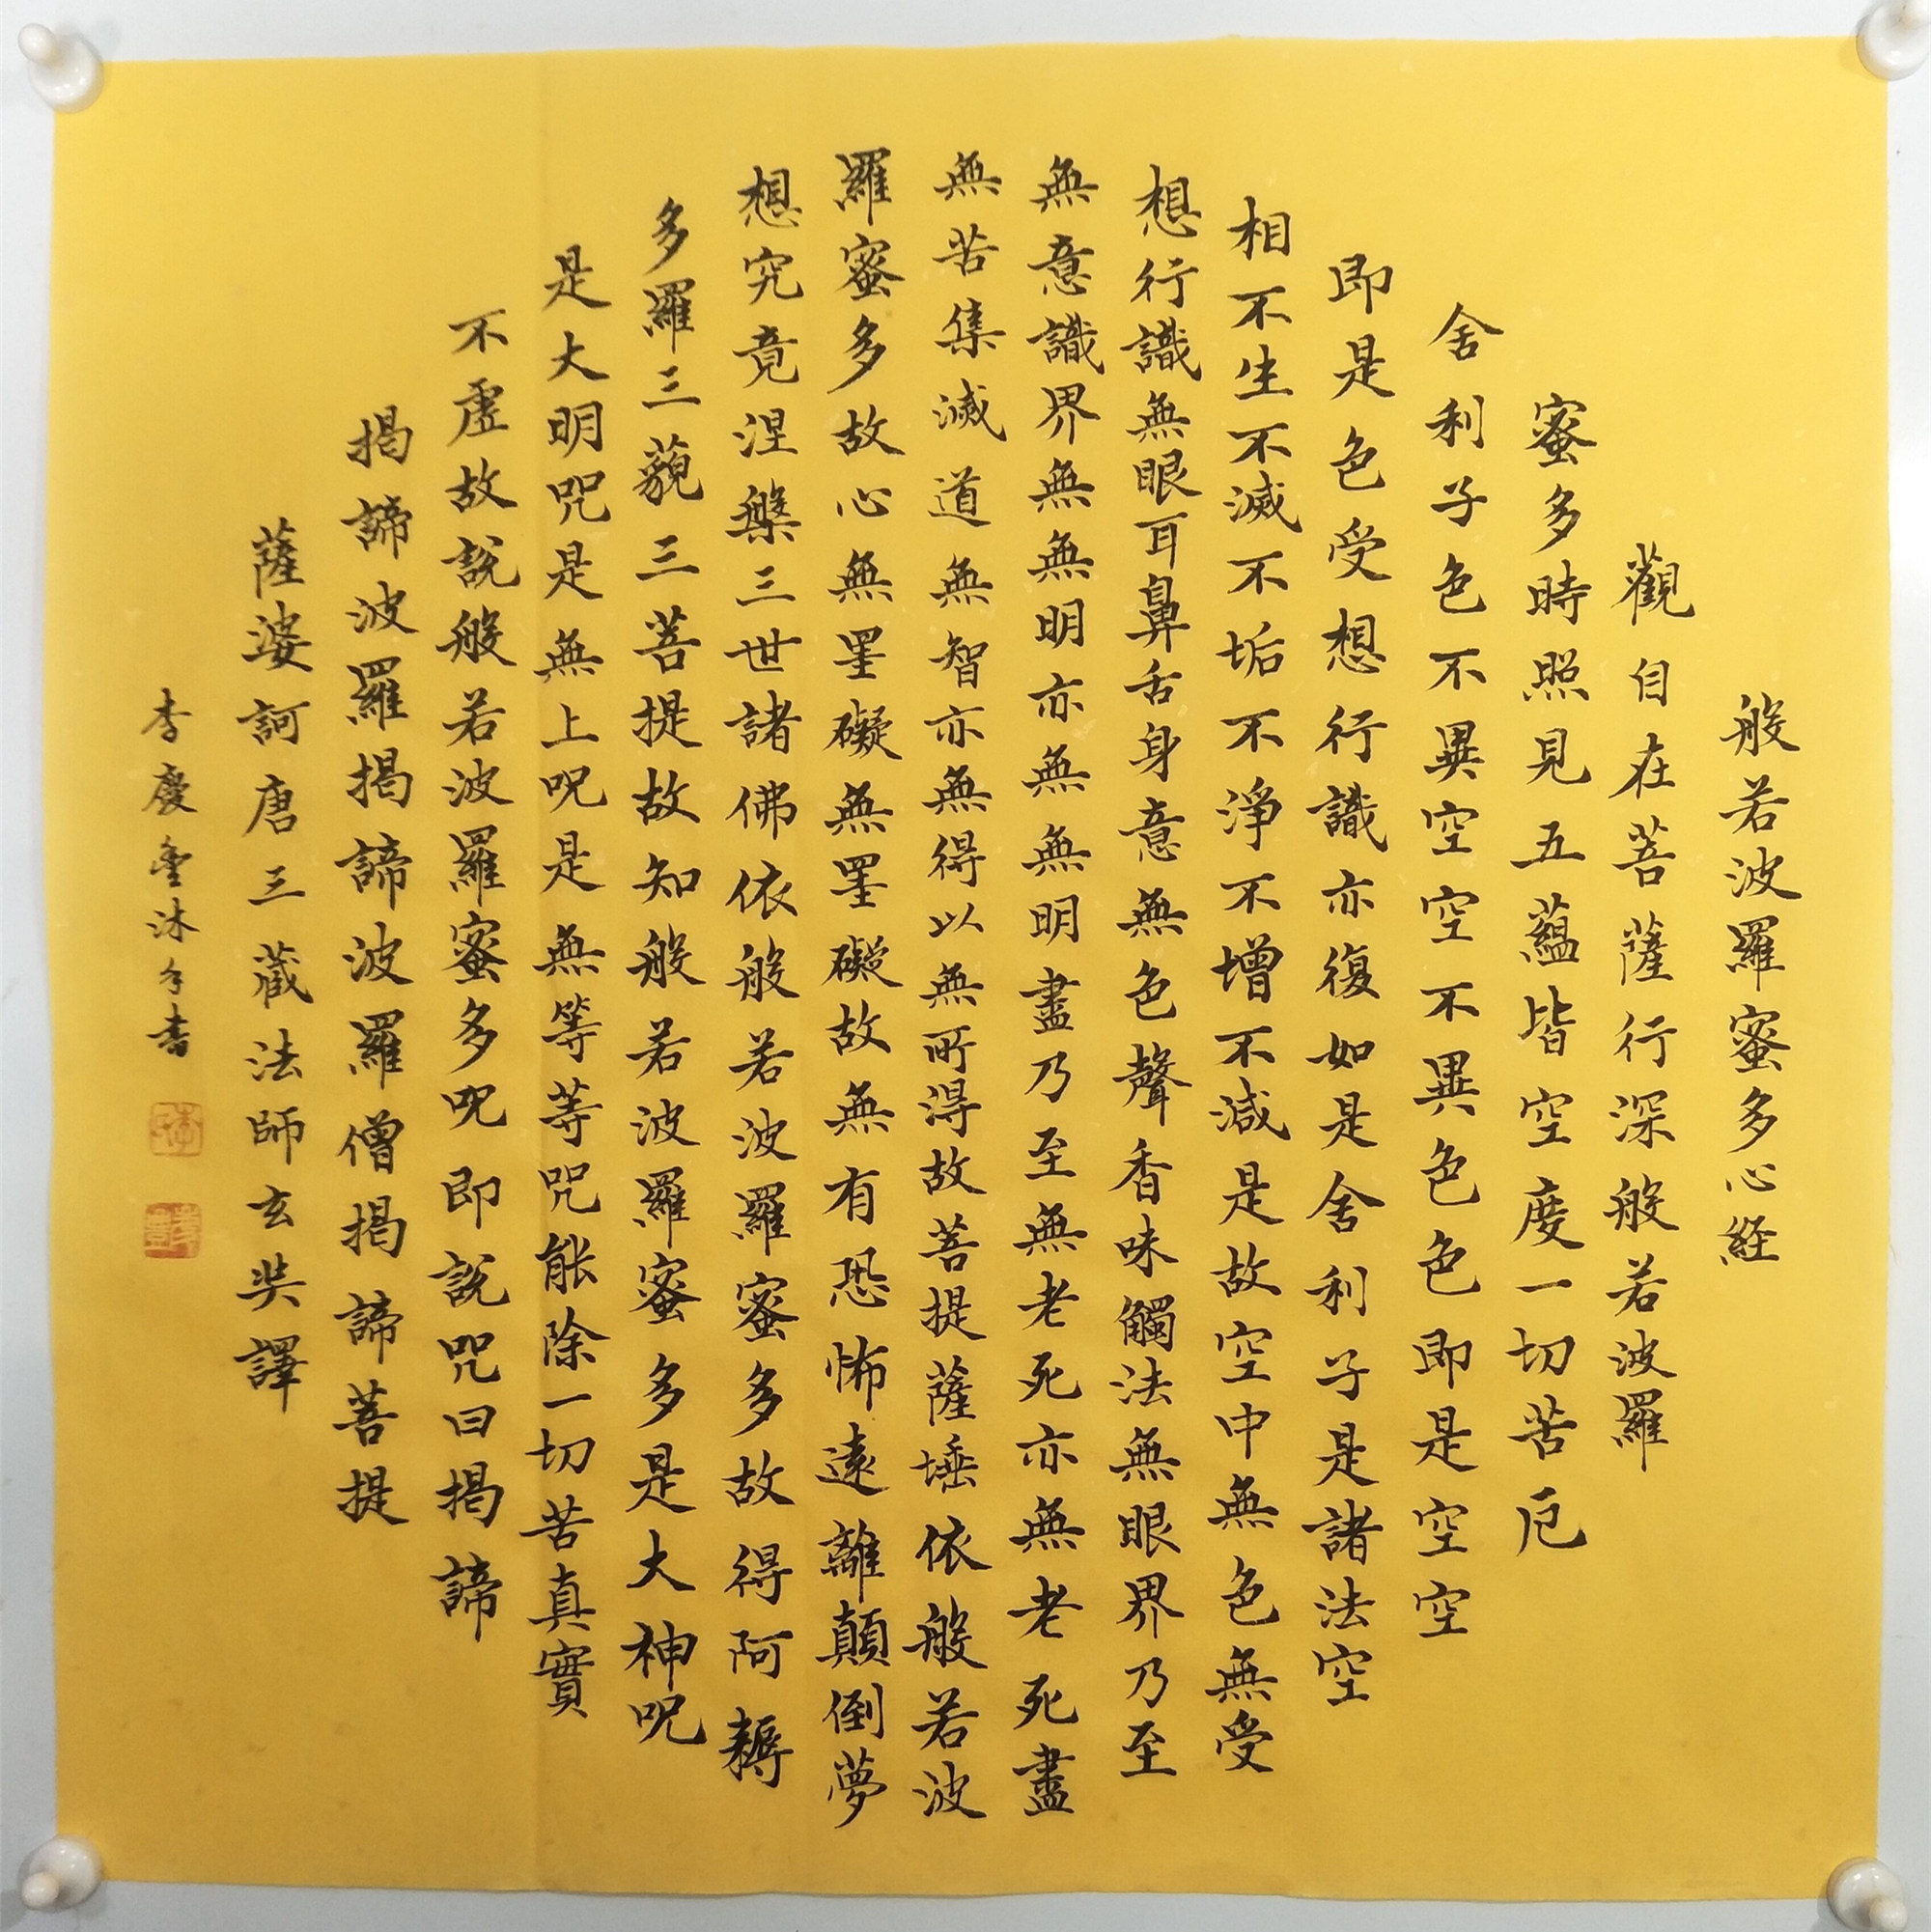 般若波羅蜜多心経
觀自在菩薩行深般若波羅
蜜多時照見五蘊皆空度一切苦厄
舍利子色不異空空不異色色即是空空
即是色受想行識亦復如是舍利子是諸法空
相不生不滅不垢不淨不增不減是故空中無色無受
想行識無眼耳鼻舌身意無色聲香味觸法無眼界乃至
無意識界無無明亦無無明盡乃至無老死亦無老死盡
無苦集滅道無智亦無得以無所得故菩提薩埵依般若波
羅蜜多故心無罣礙無罣礙故無有恐怖遠離顛倒夢
想究竟涅槃三世諸佛依般若波羅蜜多故得阿耨
多羅三藐三菩提故知般若波羅蜜多是大神呪
是大明咒是無上呪是無等等咒能除一切苦真實
不虛故說般若波羅蜜多呪即說咒曰揭諦
揭諦波羅揭諦波羅僧揭諦菩提
薩婆訶唐三藏法師玄奘譯
李慶豐沐手書